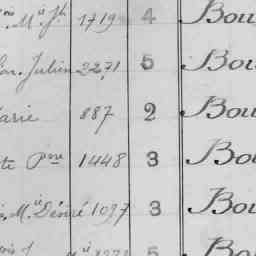 Mie Jh 1719 4 Bou
Julien 2271 5 Bou
arie 887 2 Bou
te Pre 1448 3 Bou
Mie Désiré 1097 3 Bou
5 Bou